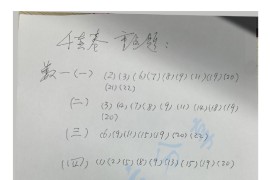 4套卷 重题:
数一(一) (2) (3) (6) (7) (8) (9) (11) (19) (20)
(21) (22)
(二) (3) (4) (7) (8) (9) (11) (14) (18) (19)
(20)
(三) (6) (9) (11) (15) (19) (20) (22)
(四) (1) (2) (5) (8) (9) (11) (15) (19) (20)